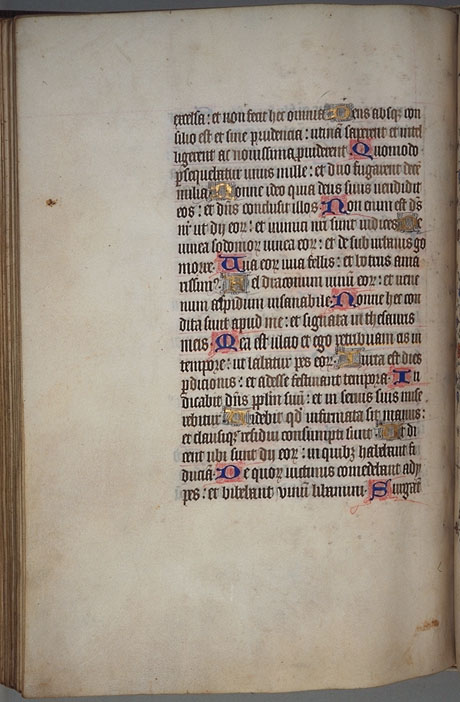 excelsa : et non fecit hec omnia Gens absq; con
silio est et sine prudencia : utinā saperent et intel
ligerent ac novissima p̱viderent Quomodo
ꝑsequebatur unus mille : et duo fugarent decē
milia Nonne ideo quia deus suus vendidit
eos : et dn̄s conclusit illos Non enim est ds̄
nr̄ ut dij eoꝝ : et inimici nr̄i sunt iudices De
vinea sodomoꝝ vinea eoꝝ : et de suburbanis go
morre Uva eoꝝ uva fellis : et botrus ama
rissim⁹ Fel draconum vinū eoꝝ : et vene
num aspidum insanabile Nonne hec con
dita sunt apud me : et signata in thesauris
meis Mea est ulcio et ego retribuam eis in
tempore : ut labatur pes eoꝝ Iuxta est dies
ꝑdicionis : et adesse festinant tempora Iu
dicabit dn̄s pplm̄ suū : et in servis suis mise
rebitur Videbit qd̄ infirmata sit manus :
et clausiq; residui consumpti sunt Et di
cent ubi sunt dij eoꝝ : in quibꝫ habebant fi
duciā De quoꝝ victimis comedebant adi
pes : et bibebant vinū libaminum Surgāt